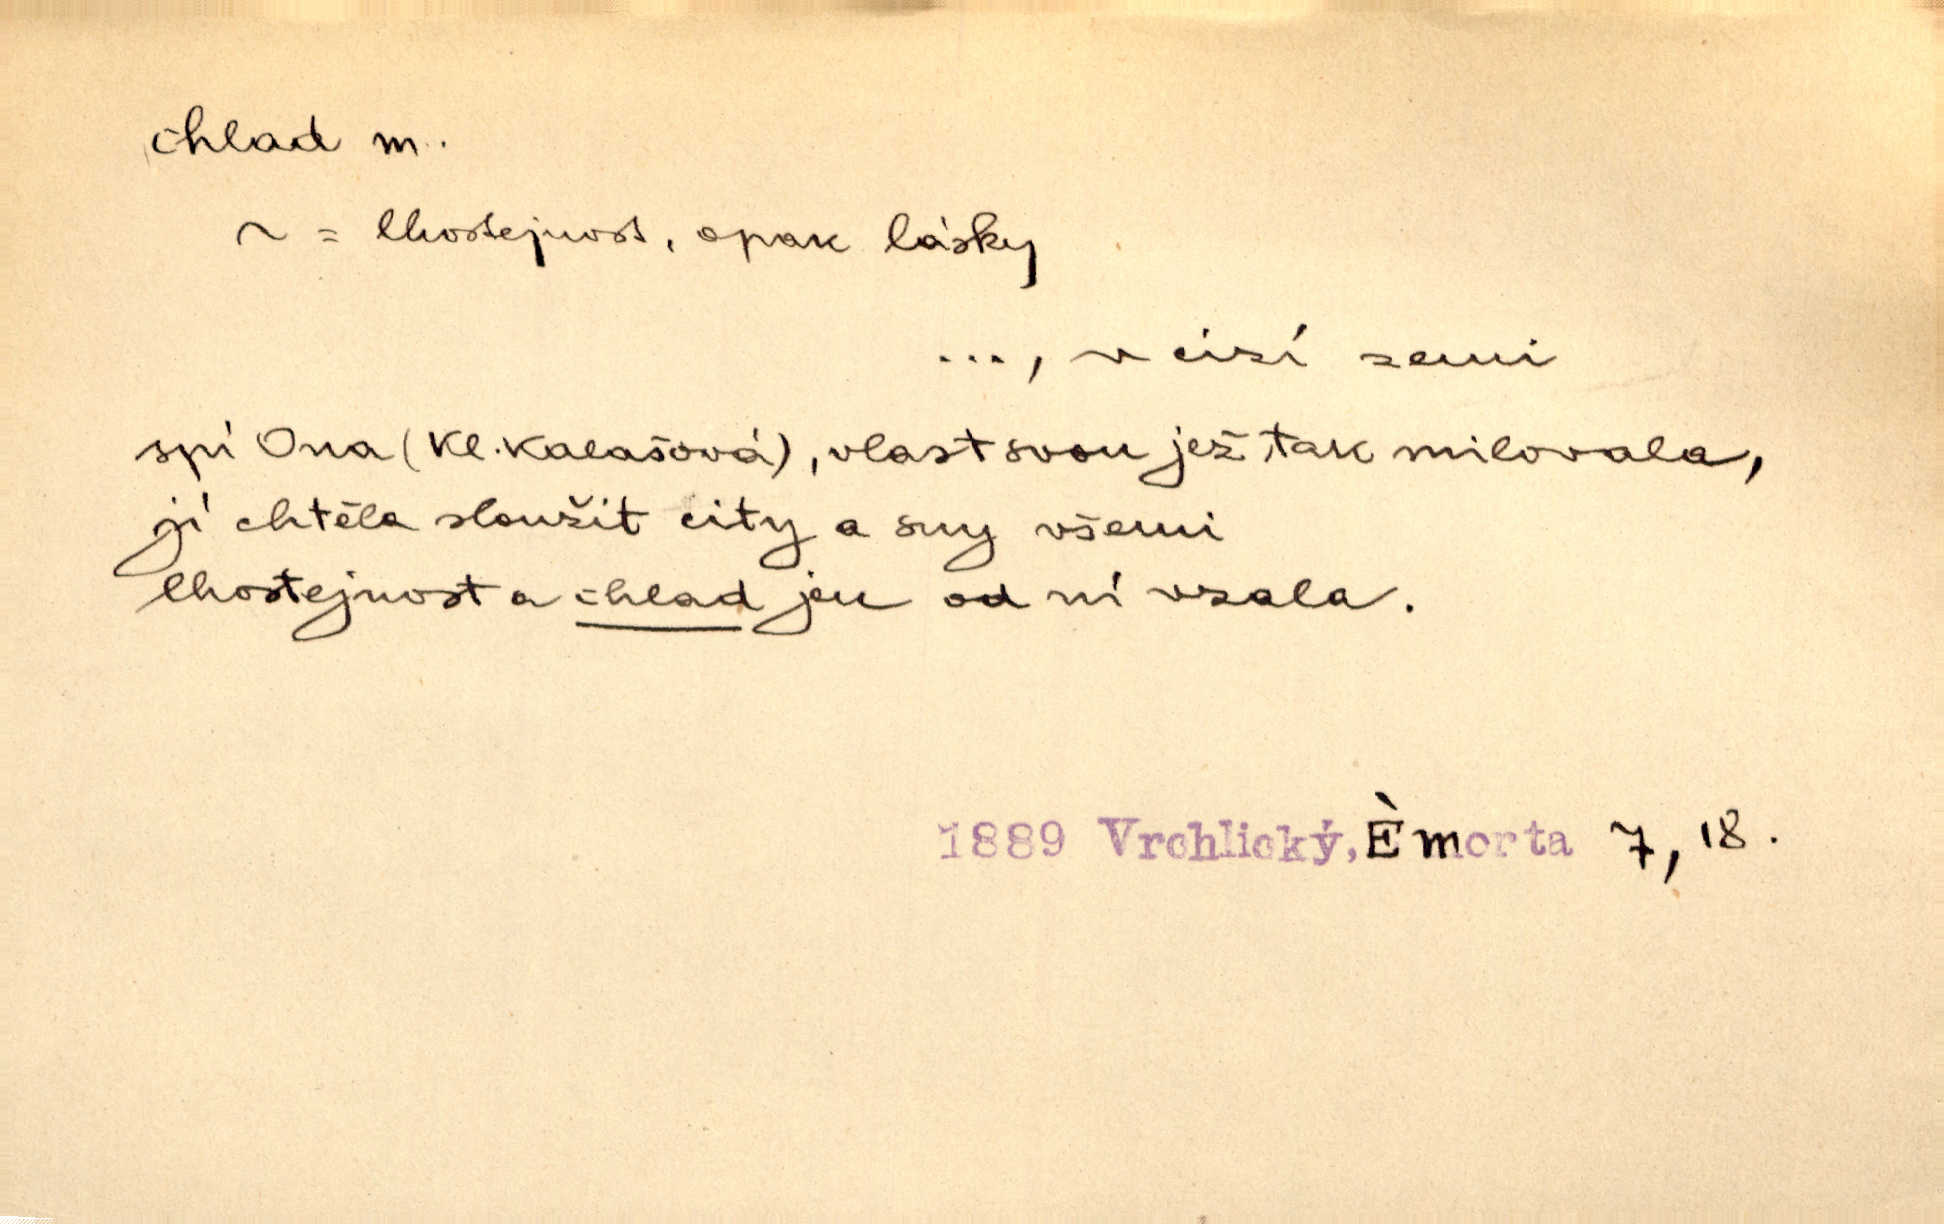 chlad m.
~ = lhostejnost, opak lásky
..., v cizí zemi
spí Ona (Kl. Kalašová), vlast svou jež tak milovala,
jí chtěla sloužit city a sny všemi
lhostejnost a chlad jen od ní vzala.
1889 Vrchlický, È morta 7, 18.